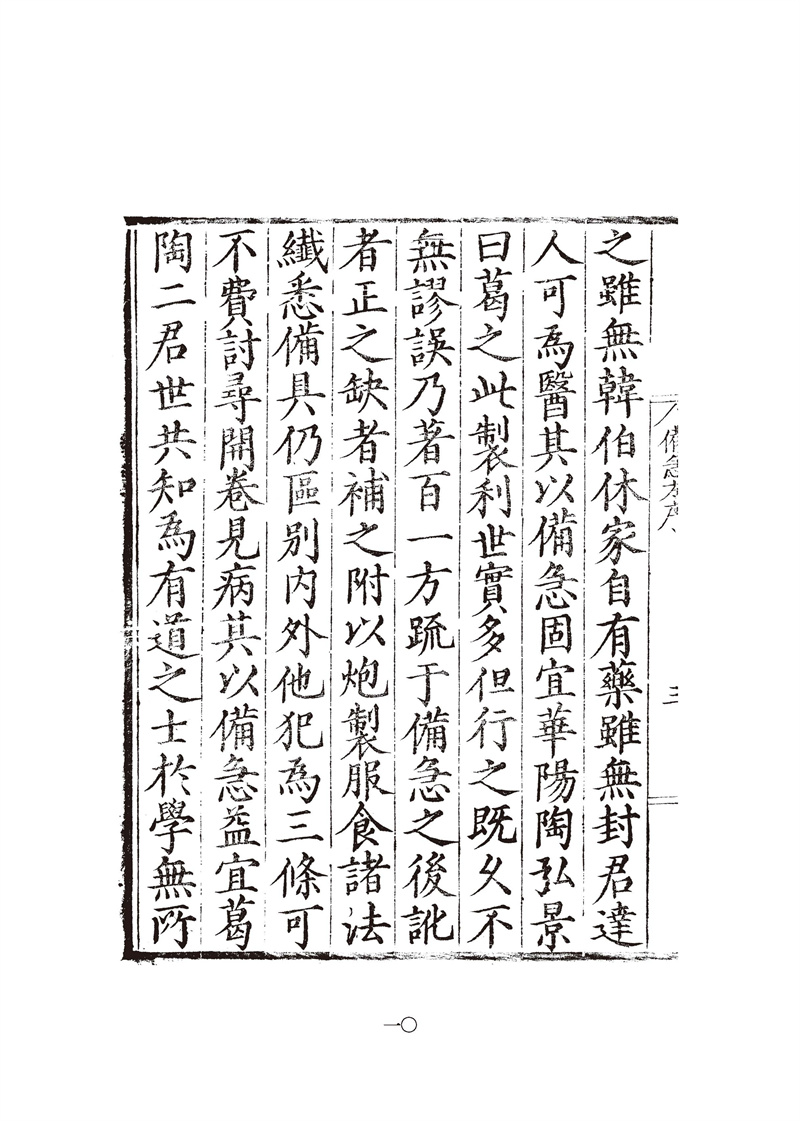 之雖無韓伯休家自有藥雖無封君達
人可為醫其以備急固宜華陽陶弘景
曰葛之此製利世實多但行之既久不
無謬誤乃著百一方疏于備急之後訛
者正之缺者補之附以炮製服食諸法
纖悉備具仍區別內外他犯為三條可
不費討尋開卷見病其以備急益宜葛
陶二君世共知為有道之士於學無所
備急
三
一〇